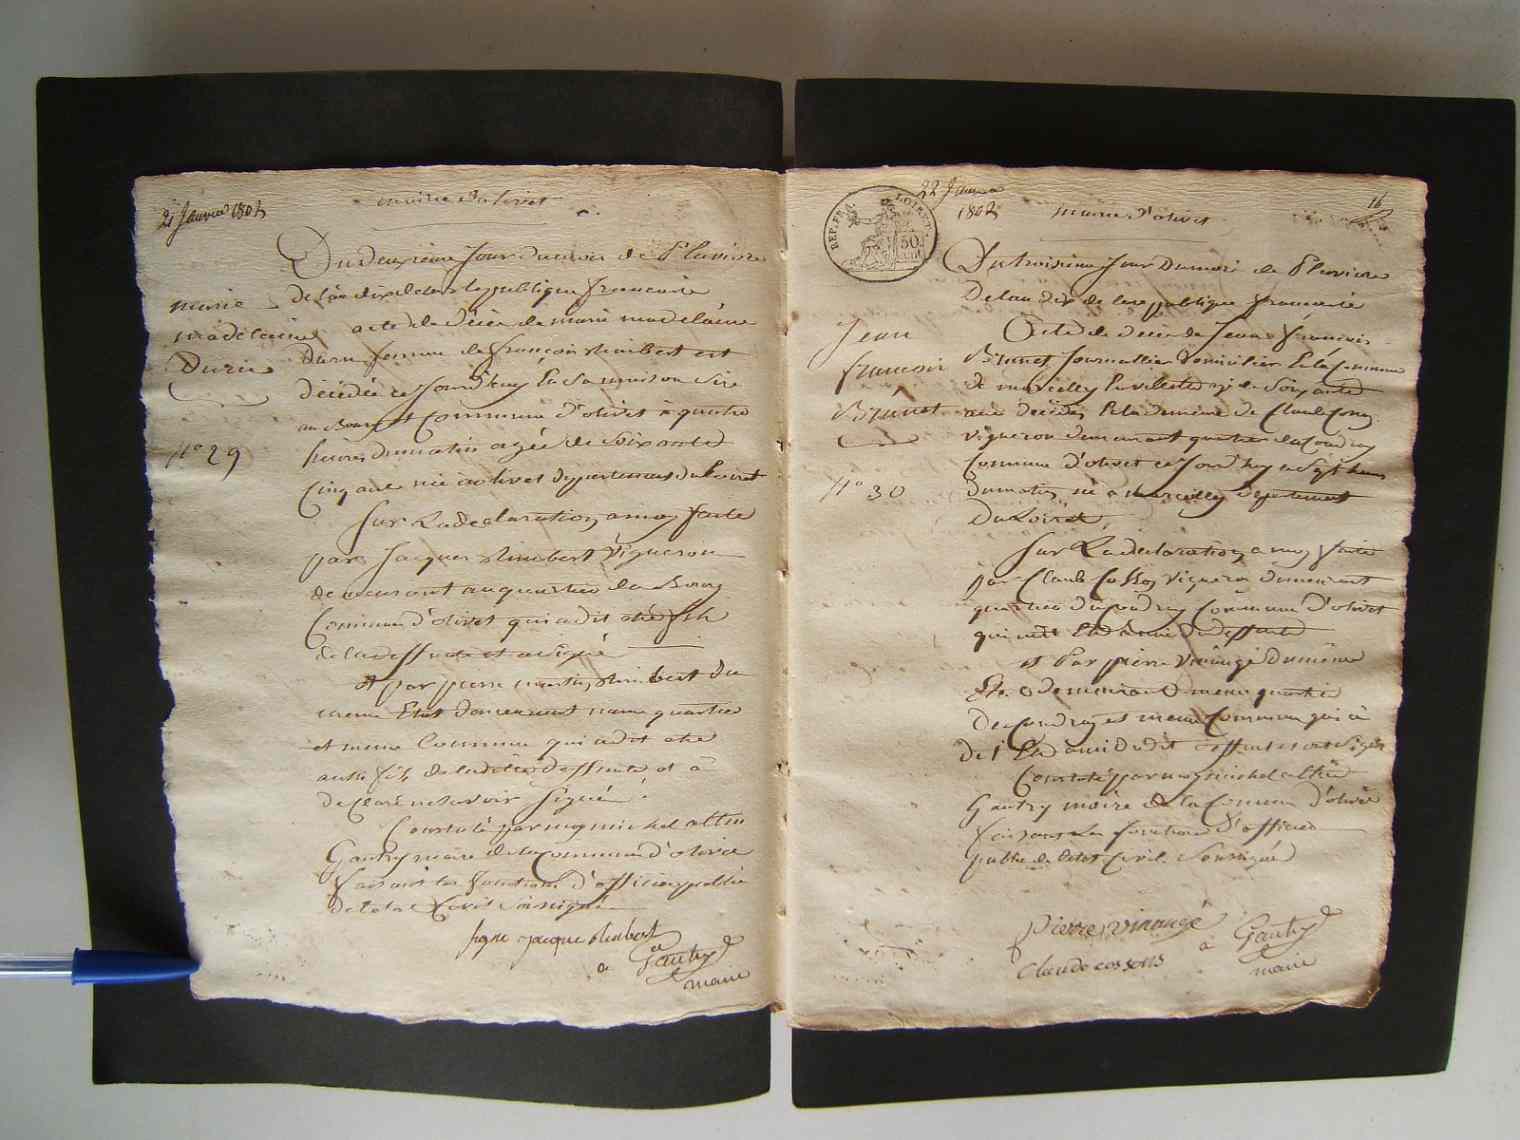 21 Janvier 1802
mairie d'olivet
Du deuxième Jour du mois de Pluviose
de l'an dix de la republique francaise
marie
madelaine
Duru
n° 29
acte de décès de marie madelaine
Duru femme de françois Rimbert est
décédée ce Jourd'huy En Sa maison Sise
au Bourg et Commune d'olivet à quatre
heures du matin agée de Soixante
Cinq ans née à olivet departement du Loiret
Sur La declaration a moy faite
par Jacques Rimbert Vigneron
demeurant au quartier du Bourg
Commune d'olivet qui a dit etre fils
de la deffunte et a signé
et par pierre martin Rimbert du
meme Etat demeurant meme quartier
et meme Commune qui a dit etre
aussi fils de la ditte deffunte et a
declaré ne savoir Signé
Constaté par moy michel altin
Gautry maire de la Commune d'olivet
faisant les fonctions d'officier public
de l'etat Civil Soussigné
signe jacque Rimbert
Gautry
maire
REP. FRA. LOIRET.
50
22 Janvier
1802
mairie d'olivet
16
Du troisieme Jour Du mois de Pluviose
De l'an dix de la republique francaise
Jean
francois
Brunet
n° 30
Acte de decès de Jean francois
Brunet Journallier Domicilier En la Commune
de marcilly En villette agé de Soixante
ans décédés En la demeure de Claude Cosson
vigneron demeurant quartier du Coudray
Commune d'olivet ce Jourd'huy a Sept heures
du matin né a marcilly departement
Du Loiret
Sur La declaration a moy faite
par Claude Cosson Vigneron demeurant
quartier du Coudray Commune d'olivet
qui a dit Etre ami du deffunt
et Par pierre Vinauge du même
Etat demeurant meme quartier
du Coudray et meme Commune qui a
dit Etre ami dudit deffunt et ont Signés
Constaté par moy michel altin
Gautry maire de la Commune d'olivet
faisant les fonctions d'officier
public de l'etat Civil Soussigné
Pierre vinauge
Gautry
Claude cossons
maire